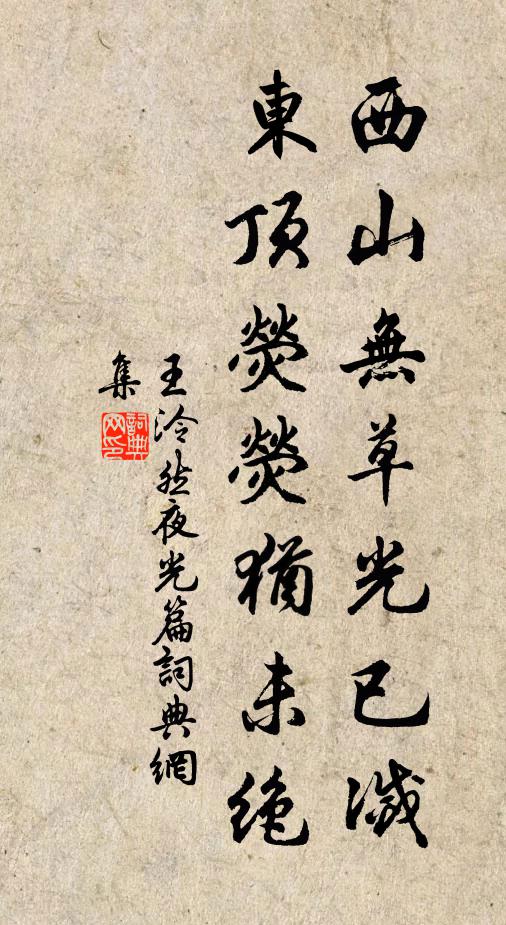 西山無草光已滅
東頂熒熒猶未絕
王泠然夜光篇詞典網
集
詞典
网印